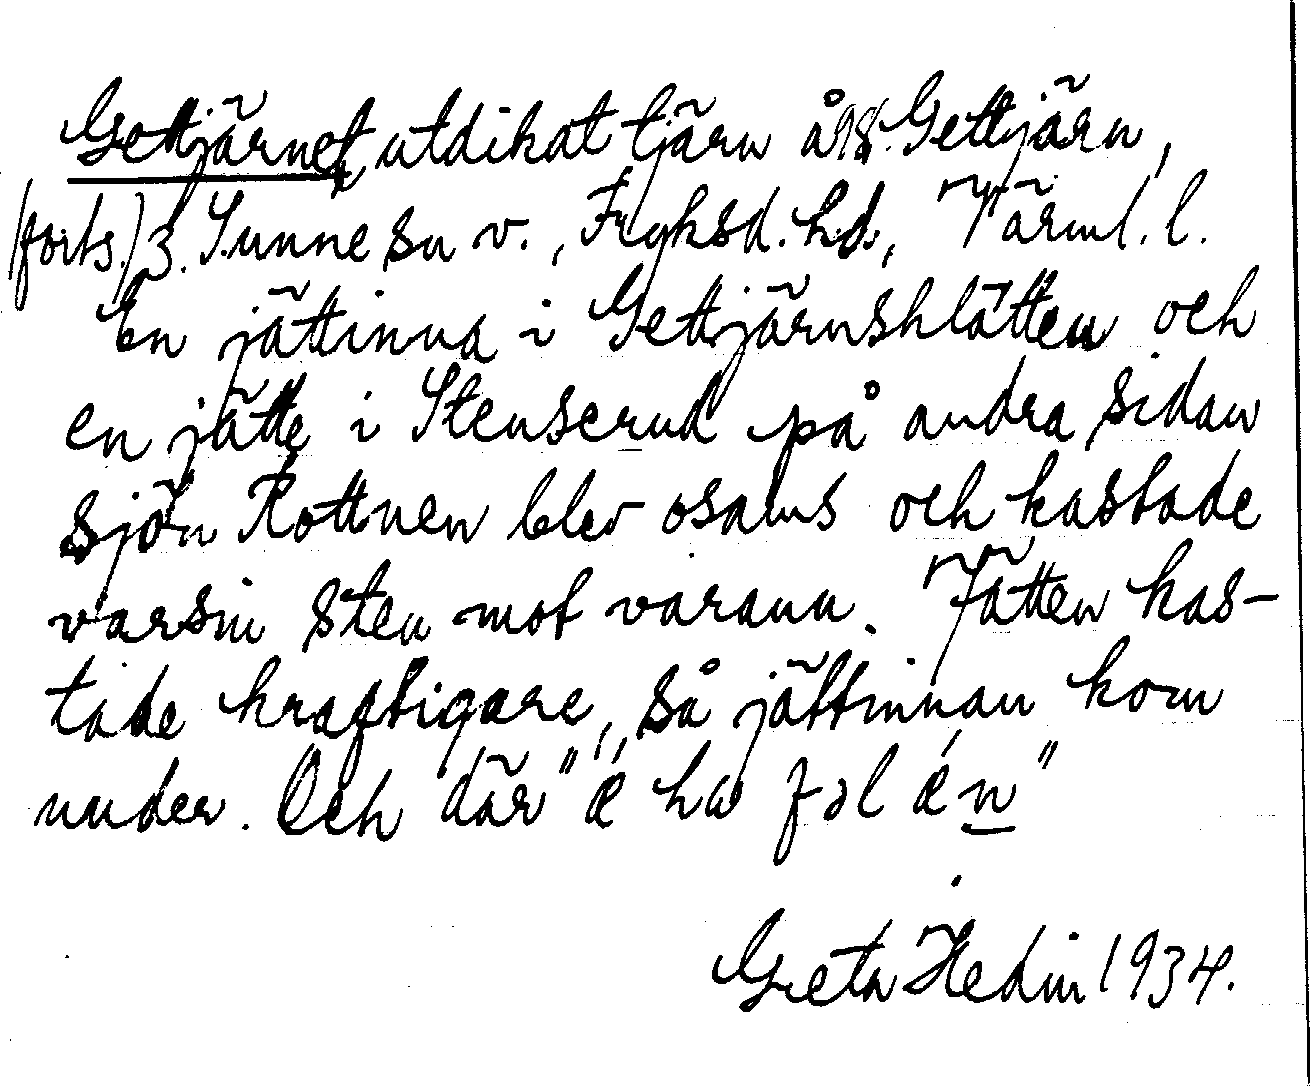 Gettjärnet, utdikat tjärn å ägs. Gettjärn,
(forts.) 3. Sunne sn v., Fryksd. hd., Värml. l.
En jättinna i Gettjärnsklätten och
en jätte i Stenserud på andra sidan
sjön Rottnen blev osams och kastade
varsin sten mot varann. Jätten kas-
tade kraftigare, så jättinnan kom
under. Och där "
Greta Hedin 1934.